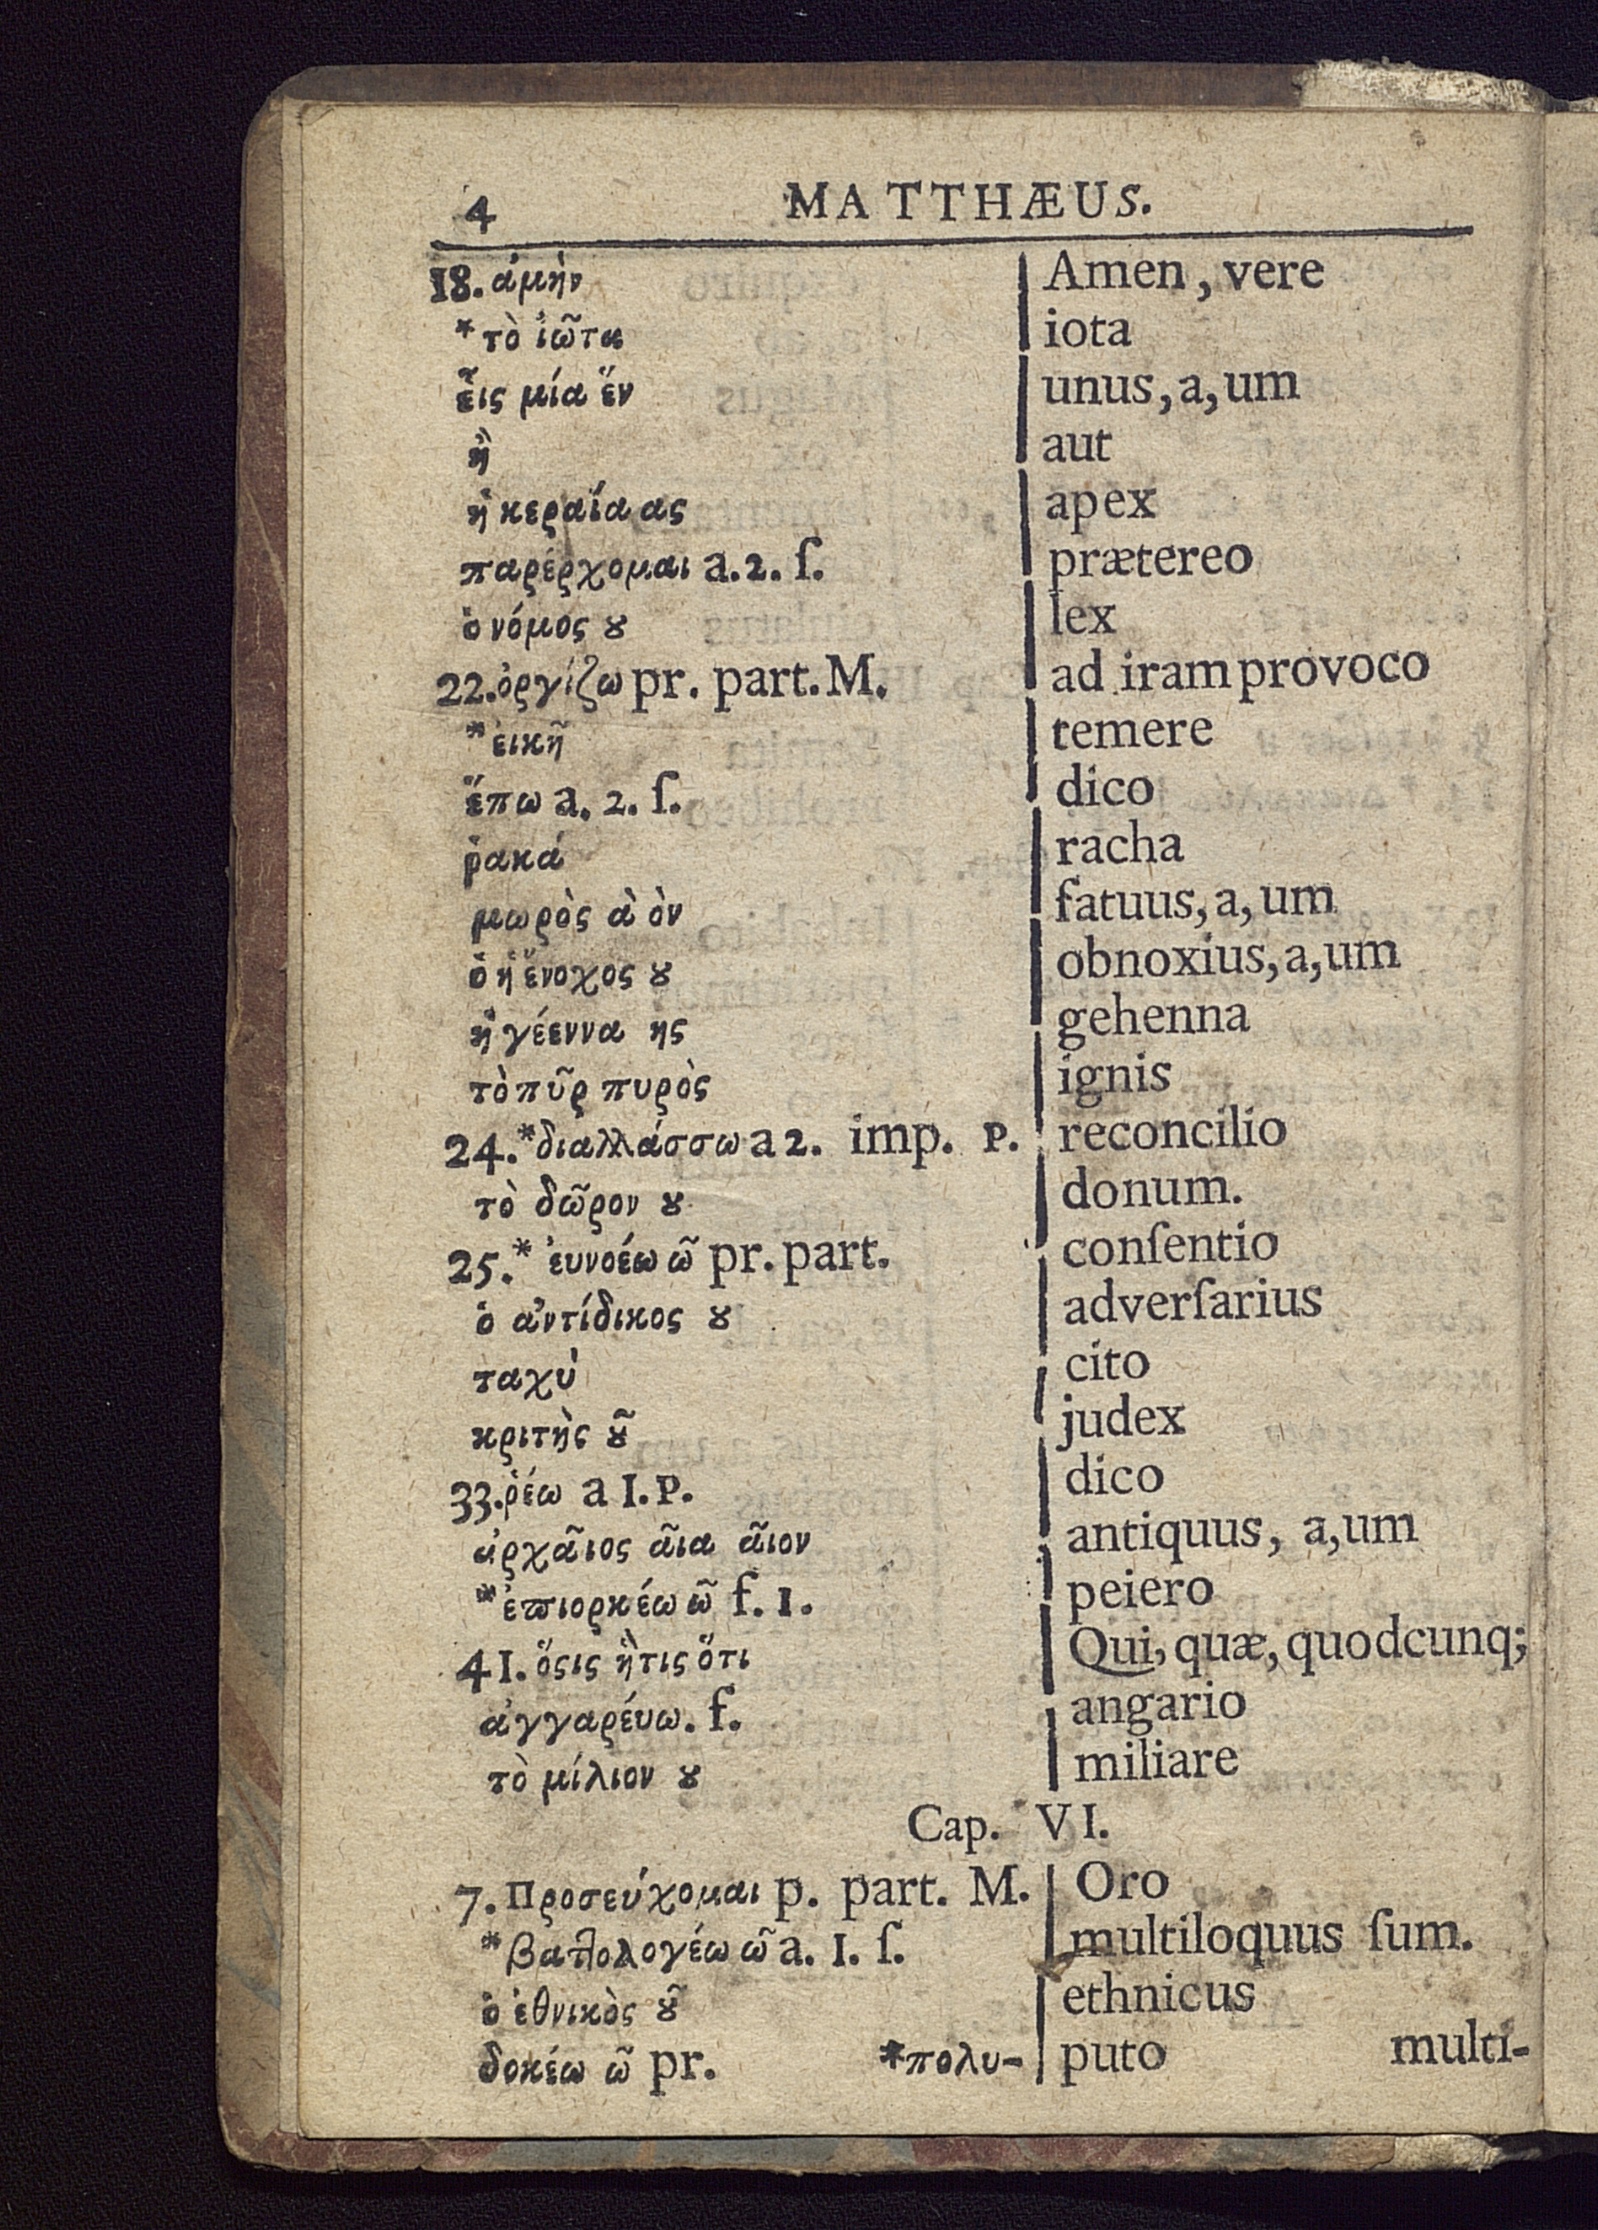 4 MATTHÆUS.
18. ἀμὴν Amen, vere
*τὸ ἰῶτα iota
εἷις μία ἕν unus, a, um
ἢ aut
ἡ κεραία ας apex
παρέρχομαι a. 2. ſ. prætereo
ὁ νόμος ȣ lex
22. ὀργίζω pr. part. M. ad iram provoco
*ἐικῆ temere
ἔπω a. 2. ſ. dico
ῥακά racha
μωρὸς ὰ ὸν fatuus, a, um
ὁ ἡ ἔνοχος ȣ obnoxius, a, um
ἡ γέεννα ης gehenna
τὸ πῦρ πυρὸς ignis
24. *διαλλάσσω a 2. imp. P. reconcilio
τὸ δῶρον ȣ donum.
25. * ἐυνοέω ῶ pr. part. conſentio
ὁ ἀντίδικος ȣ adverſarius
ταχὺ cito
κριτὴς ȣ͂ judex
33. ῥέω a 1. P. dico
ἀρχᾶιος ᾶια ᾶιον antiquus, a, um
*ἐπιορκέω ῶ f. 1. peiero
41. ὅςις ἥτις ὅτι Qui, quæ, quodcunq;
ἀγγαρέυω. f. angario
τὸ μίλιον ȣ miliare
Cap. VI.
7. Προσεύχομαι p. part. M. Oro
*βαττολογέω ῶ a. 1. ſ. multiloquus ſum.
ὁ ἐθνικὸς ȣ͂ ethnicus
δοκέω ῶ pr. *πολυ- puto multi-